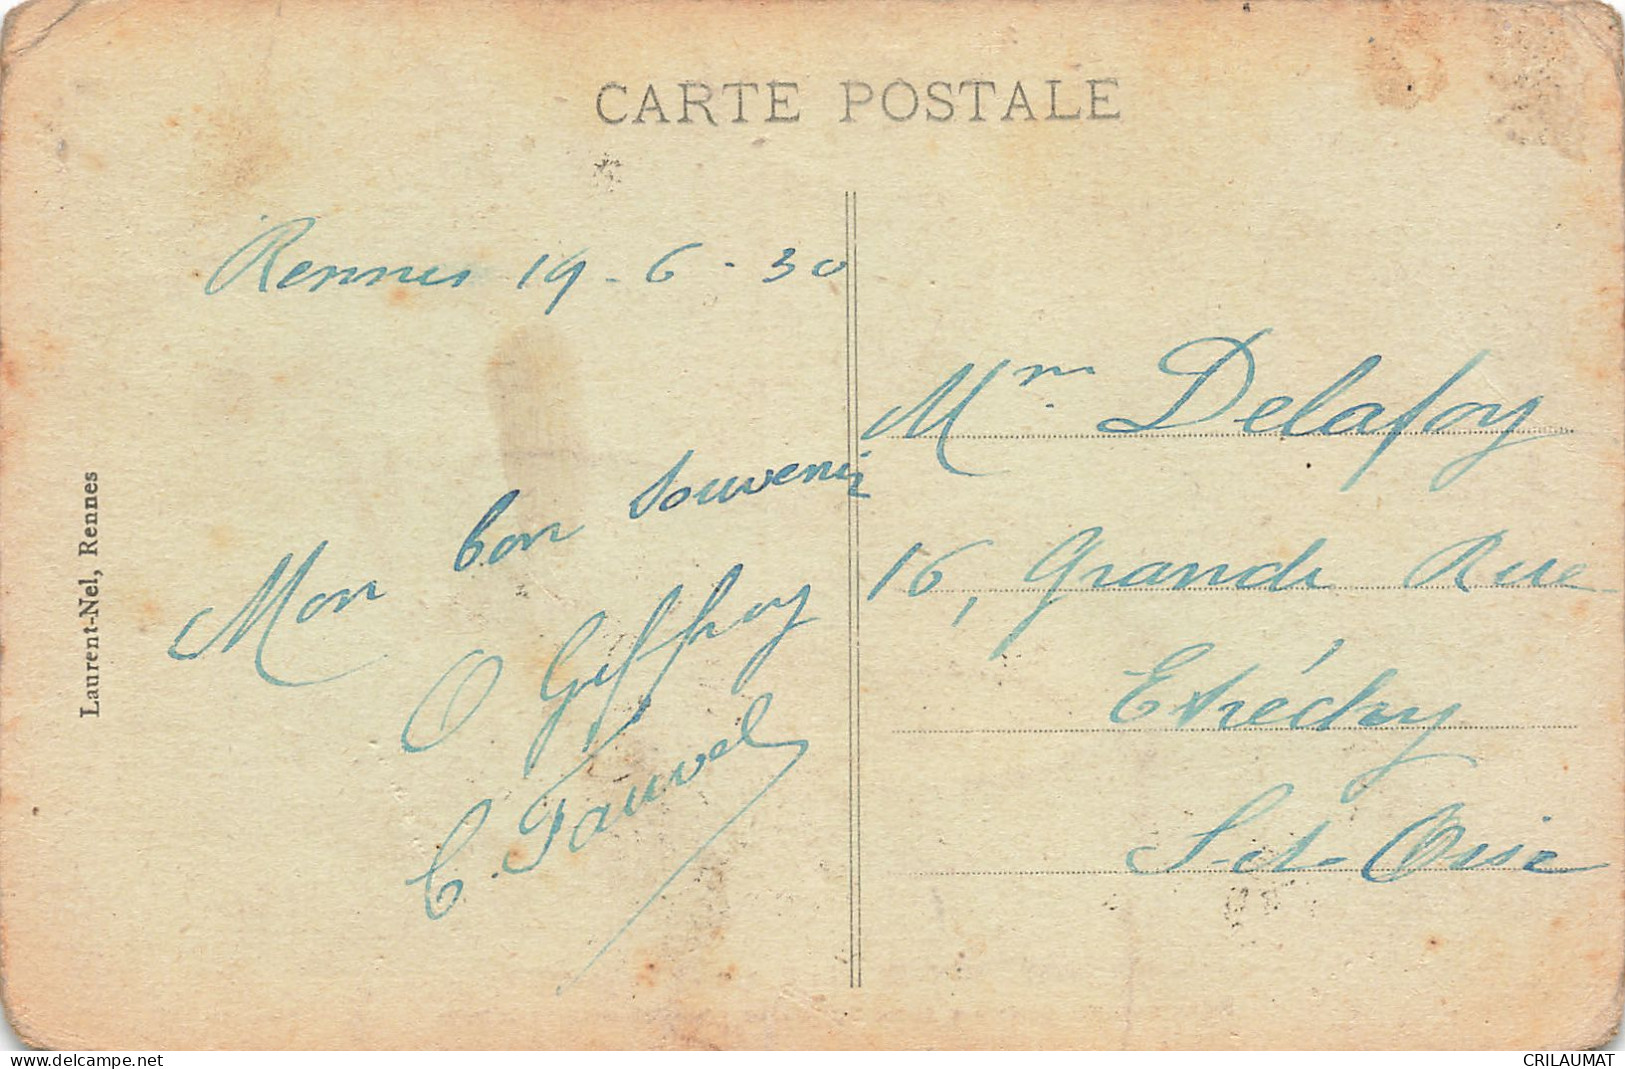 CARTE POSTALE
Rennes 19-6-30
Mon bon souvenir
O Geffroy
C. Fauvel
Laurent-Nel, Rennes
Mm Delafoy
16, Grande Rue
Etréchy
S-et-Oise
www.delcampe.net
CRILAUMAT